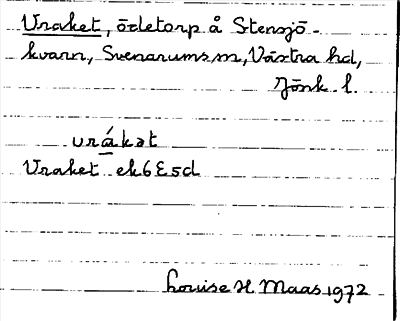 Vraket, ödetorp å Stensjö-
kvarn, Svenarums sn, Västra hd,
Jönk. l.
vrákət
Vraket ek 6E5d
Louise H. Maas 1972